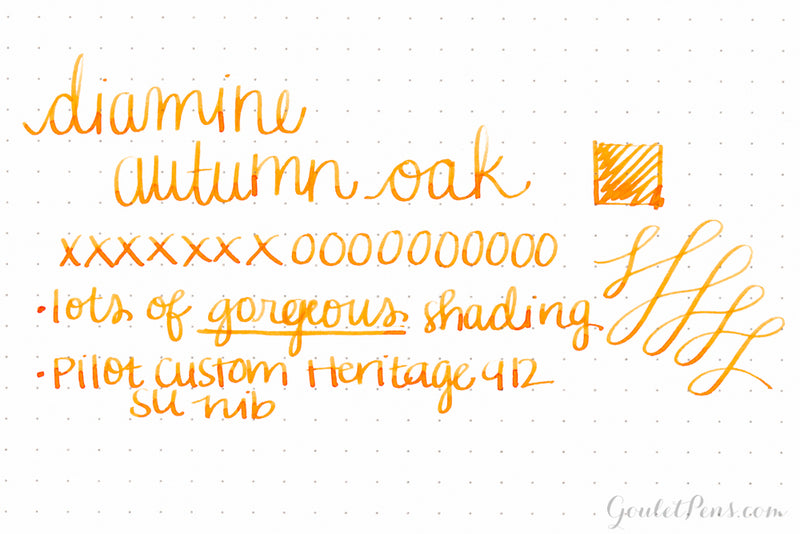 diamine
autumn oak
xxxxxxxoooooooooo
• lots of gorgeous shading
• Pilot Custom Heritage 912
SU nib
GouletPens.com